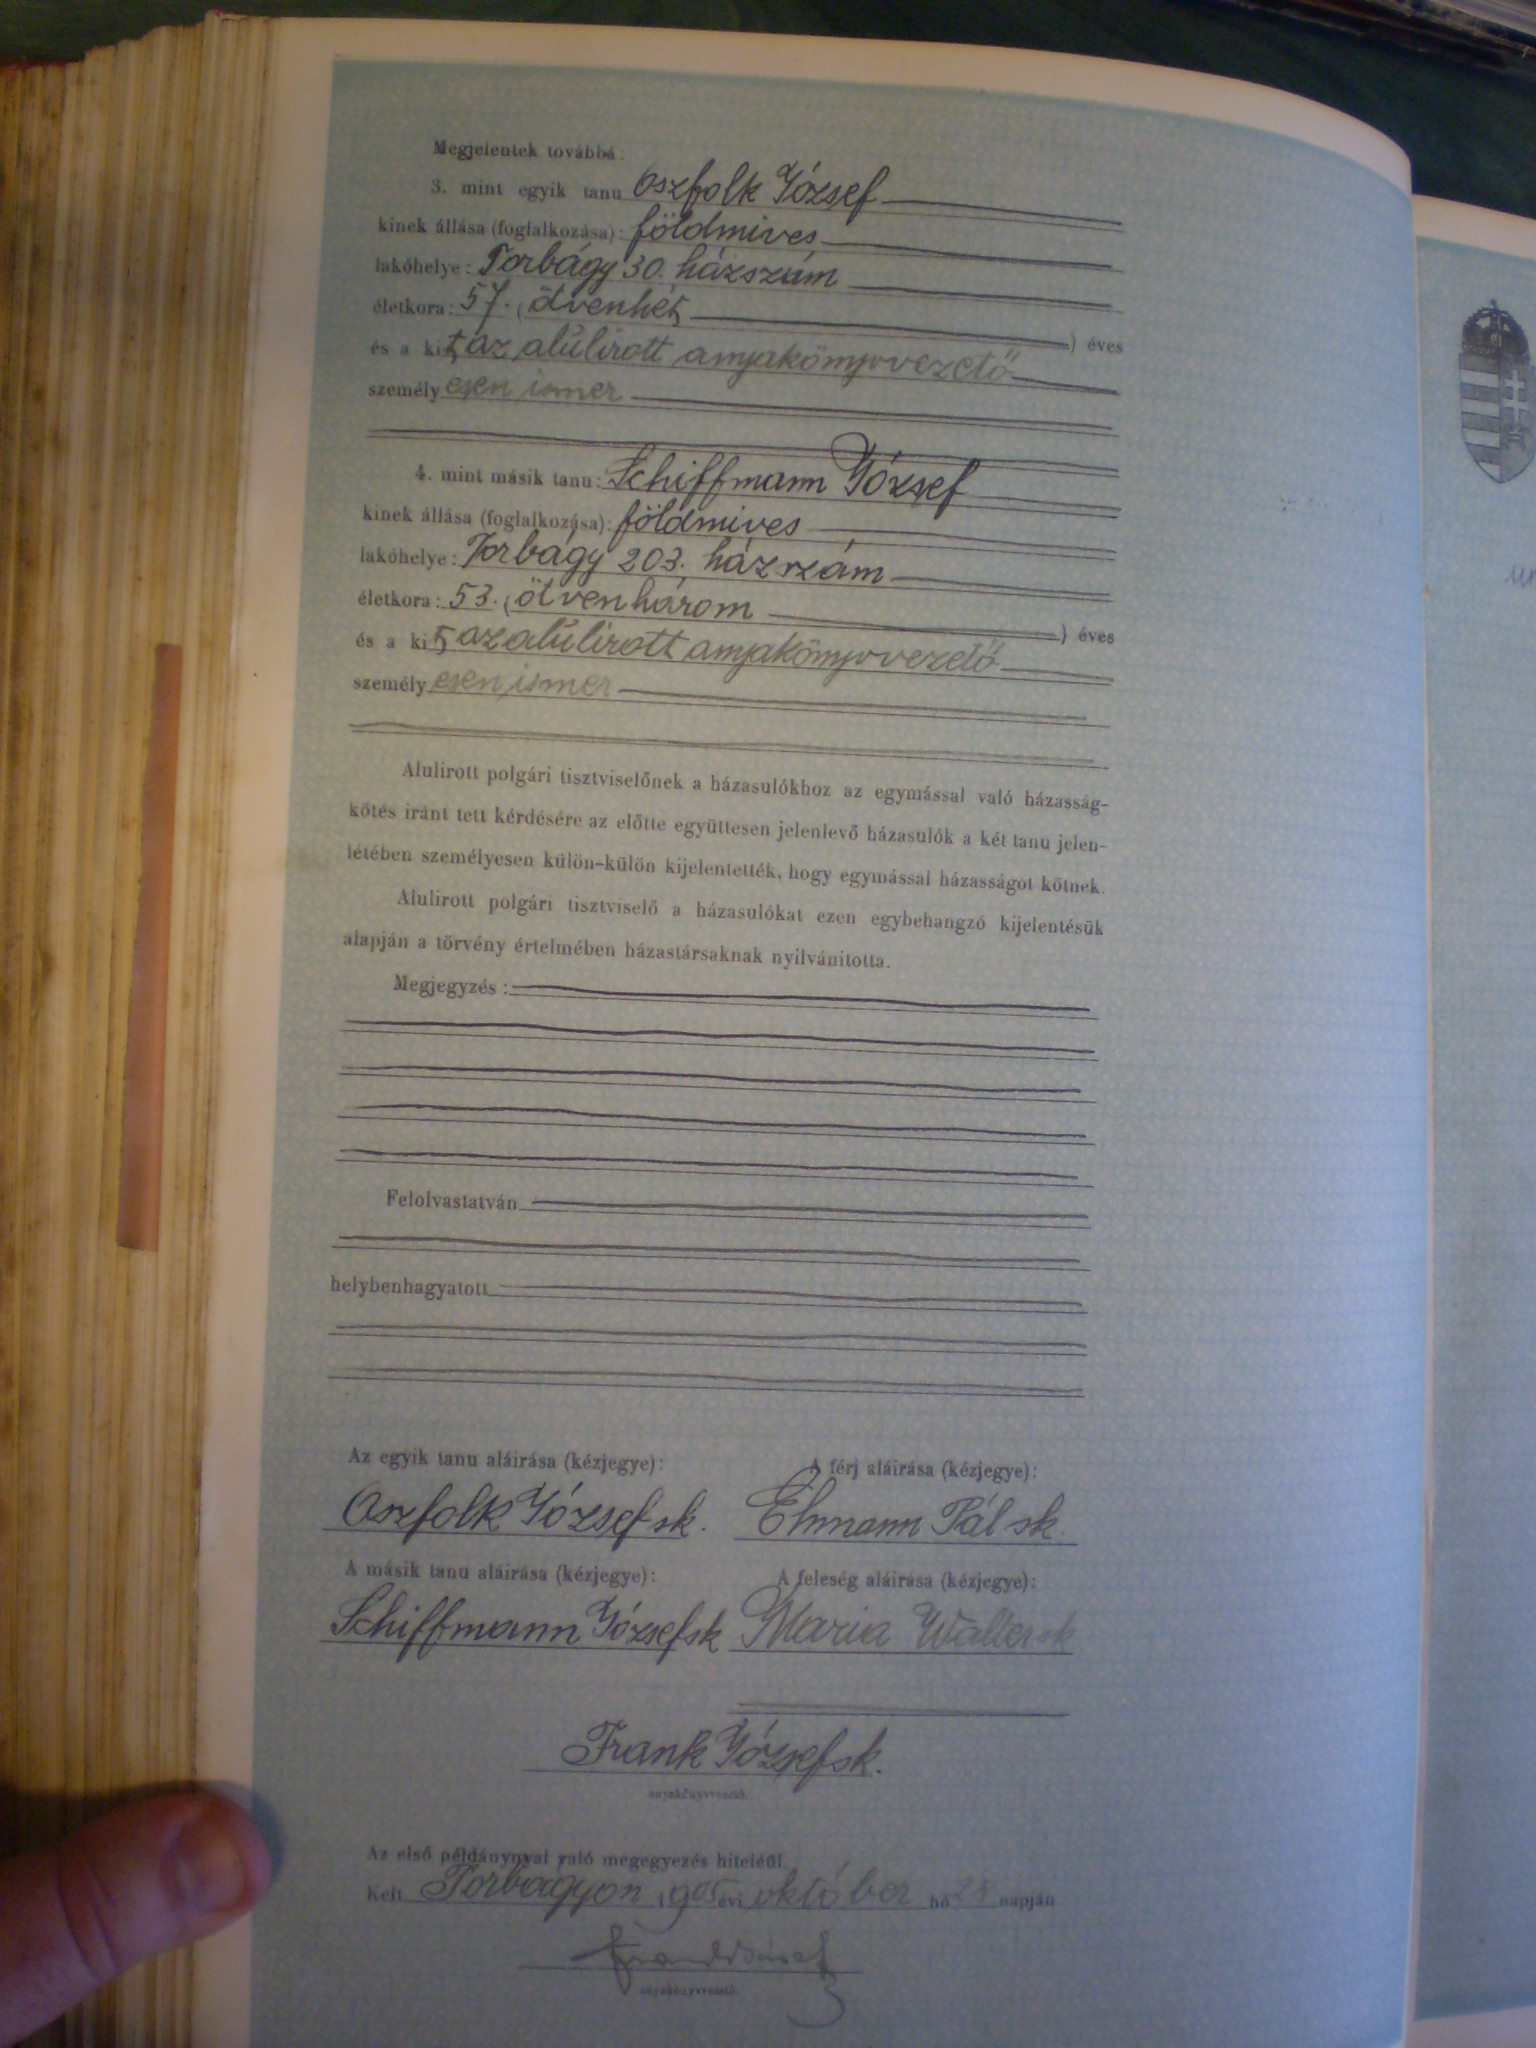 Megjelentek továbbá:
3. mint egyik tanu Oszfolk József
kinek állása (foglalkozása): földmives
lakóhelye: Torbágy 30. házszám
életkora: 57. (ötvenhét ) éves
és a kit az alulirott anyakönyvvezető
személyesen ismer
4. mint másik tanu: Schiffmann József
kinek állása (foglalkozása): földmives
lakóhelye: Torbágy 203. házszám
életkora: 53. (ötvenhárom ) éves
és a kit az alulirott anyakönyvvezető
személyesen ismer
Alulirott polgári tisztviselőnek a házasulókhoz az egymással való házasság-
kötés iránt tett kérdésére az előtte együttesen jelenlevő házasulók a két tanu jelen-
létében személyesen külön-külön kijelentették, hogy egymással házasságot kötnek.
Alulirott polgári tisztviselő a házasulókat ezen egybehangzó kijelentésük
alapján a törvény értelmében házastársaknak nyilvánitotta.
Megjegyzés:
Felolvastatván
helybenhagyatott
Az egyik tanu aláirása (kézjegye):
Oszfolk József sk.
A férj aláirása (kézjegye):
Ehmann Pál sk.
A másik tanu aláirása (kézjegye):
Schiffmann József sk
A feleség aláirása (kézjegye):
Maria Walter sk
Frank József sk.
anyakönyvvezető.
Az első példánynyal való megegyezés hiteléül.
Kelt Torbágyon 1905 évi október hó 28 napján
Frank József
anyakönyvvezető.